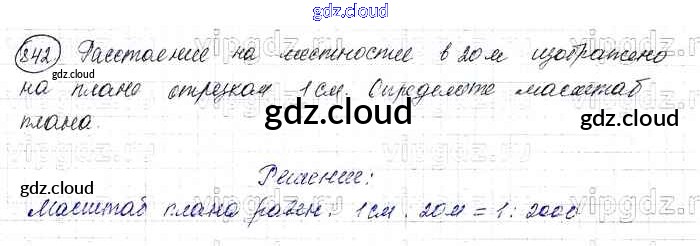 gdz.cloud
842 Расстояние на местности в 20 м изображено
gdz.cloud gdz.cloud
на плане отрезком 1 см. Определите масштаб
gdz.cloud
плана.
gdz.cloud
Решение:
gdz.cloud gdz.cloud
Масштаб плана равен: 1 см : 20 м = 1 : 2000